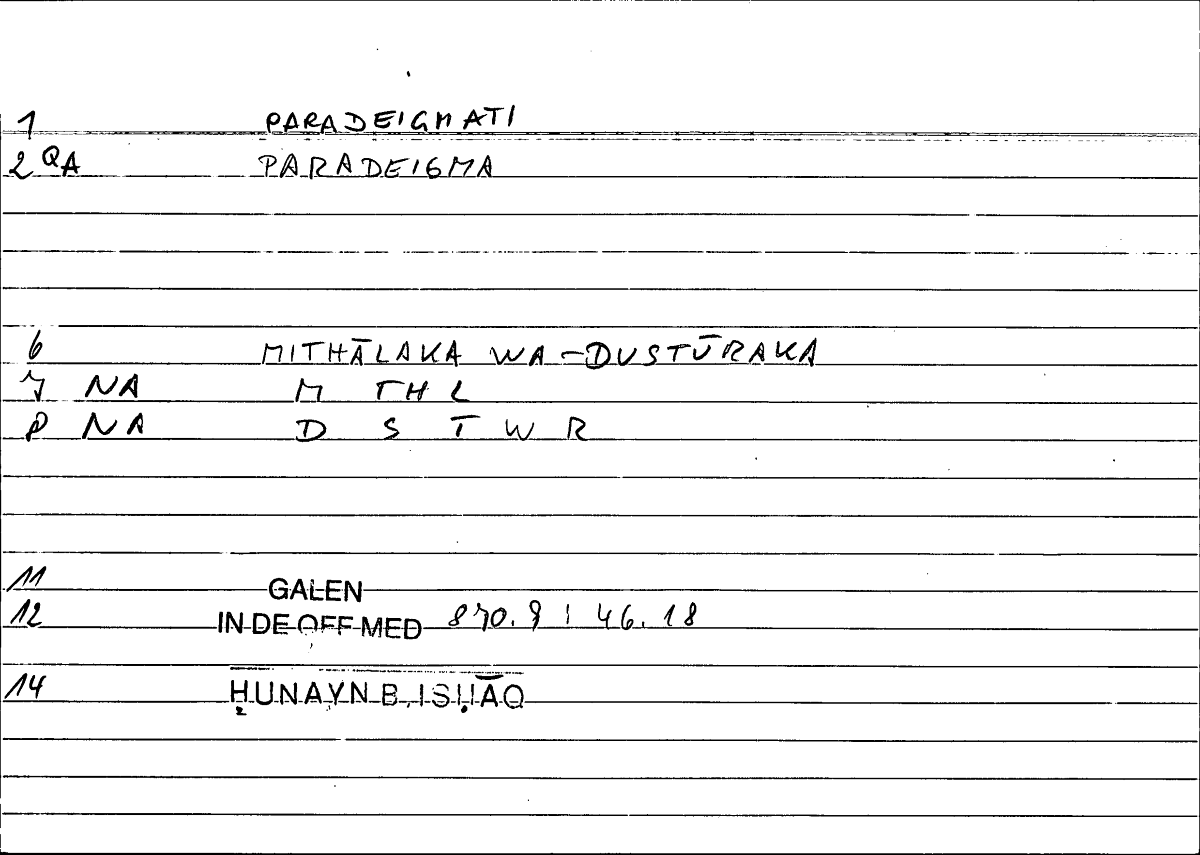 1 PARADEIGMATI
2 QA PARADEIGMA
6 MITHĀLAKA WA-DUSTŪRAKA
7 NA M TH L
8 NA D S T W R
11 GALEN
12 IN DE OFF MED 870.9 : 46.18
14 ḤUNAYN B. ISḤĀQ